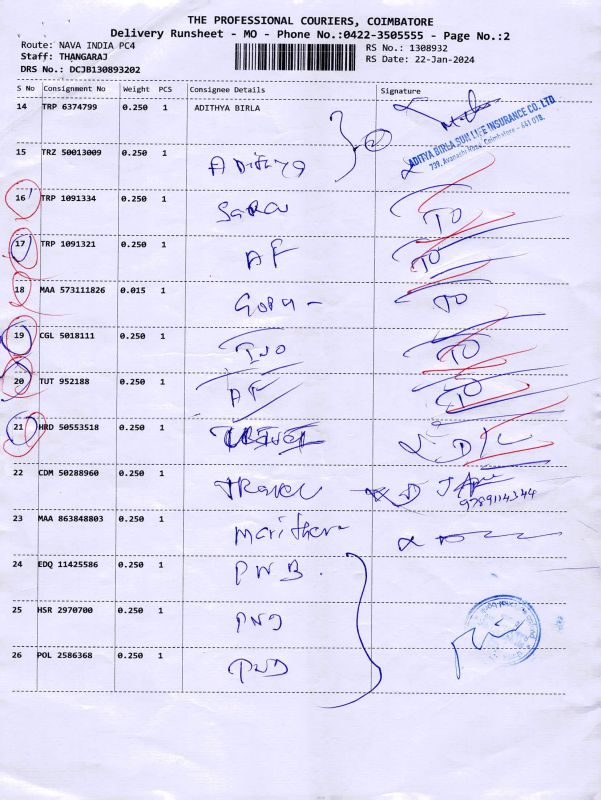 THE PROFESSIONAL COURIERS, COIMBATORE
Delivery Runsheet - MO - Phone No.:0422-3505555 - Page No.:2
Route: NAVA INDIA PC4
Staff: THANGARAJ
DRS No.: DCJB130893202
RS No.: 1308932
RS Date: 22-Jan-2024
S No Consignment No Weight PCS Consignee Details Signature
14 TRP 6374799 0.250 1 ADITHYA BIRLA
ADITYA BIRLA SUN LIFE INSURANCE CO. LTD
739, Avanashi Road, Coimbatore - 641 018.
15 TRZ 50013009 0.250 1
16 TRP 1091334 0.250 1 TO
17 TRP 1091321 0.250 1 AF TO
18 MAA 573111826 0.015 1 TO
19 CGL 5018111 0.250 1 TO
20 TUT 952188 0.250 1 AF TO
21 HRD 50553518 0.250 1 D/L
22 CDM 50288960 0.250 1 Travel
9789114344
23 MAA 863848803 0.250 1
24 EDQ 11425586 0.250 1 PNB
25 HSR 2970700 0.250 1
26 POL 2586368 0.250 1